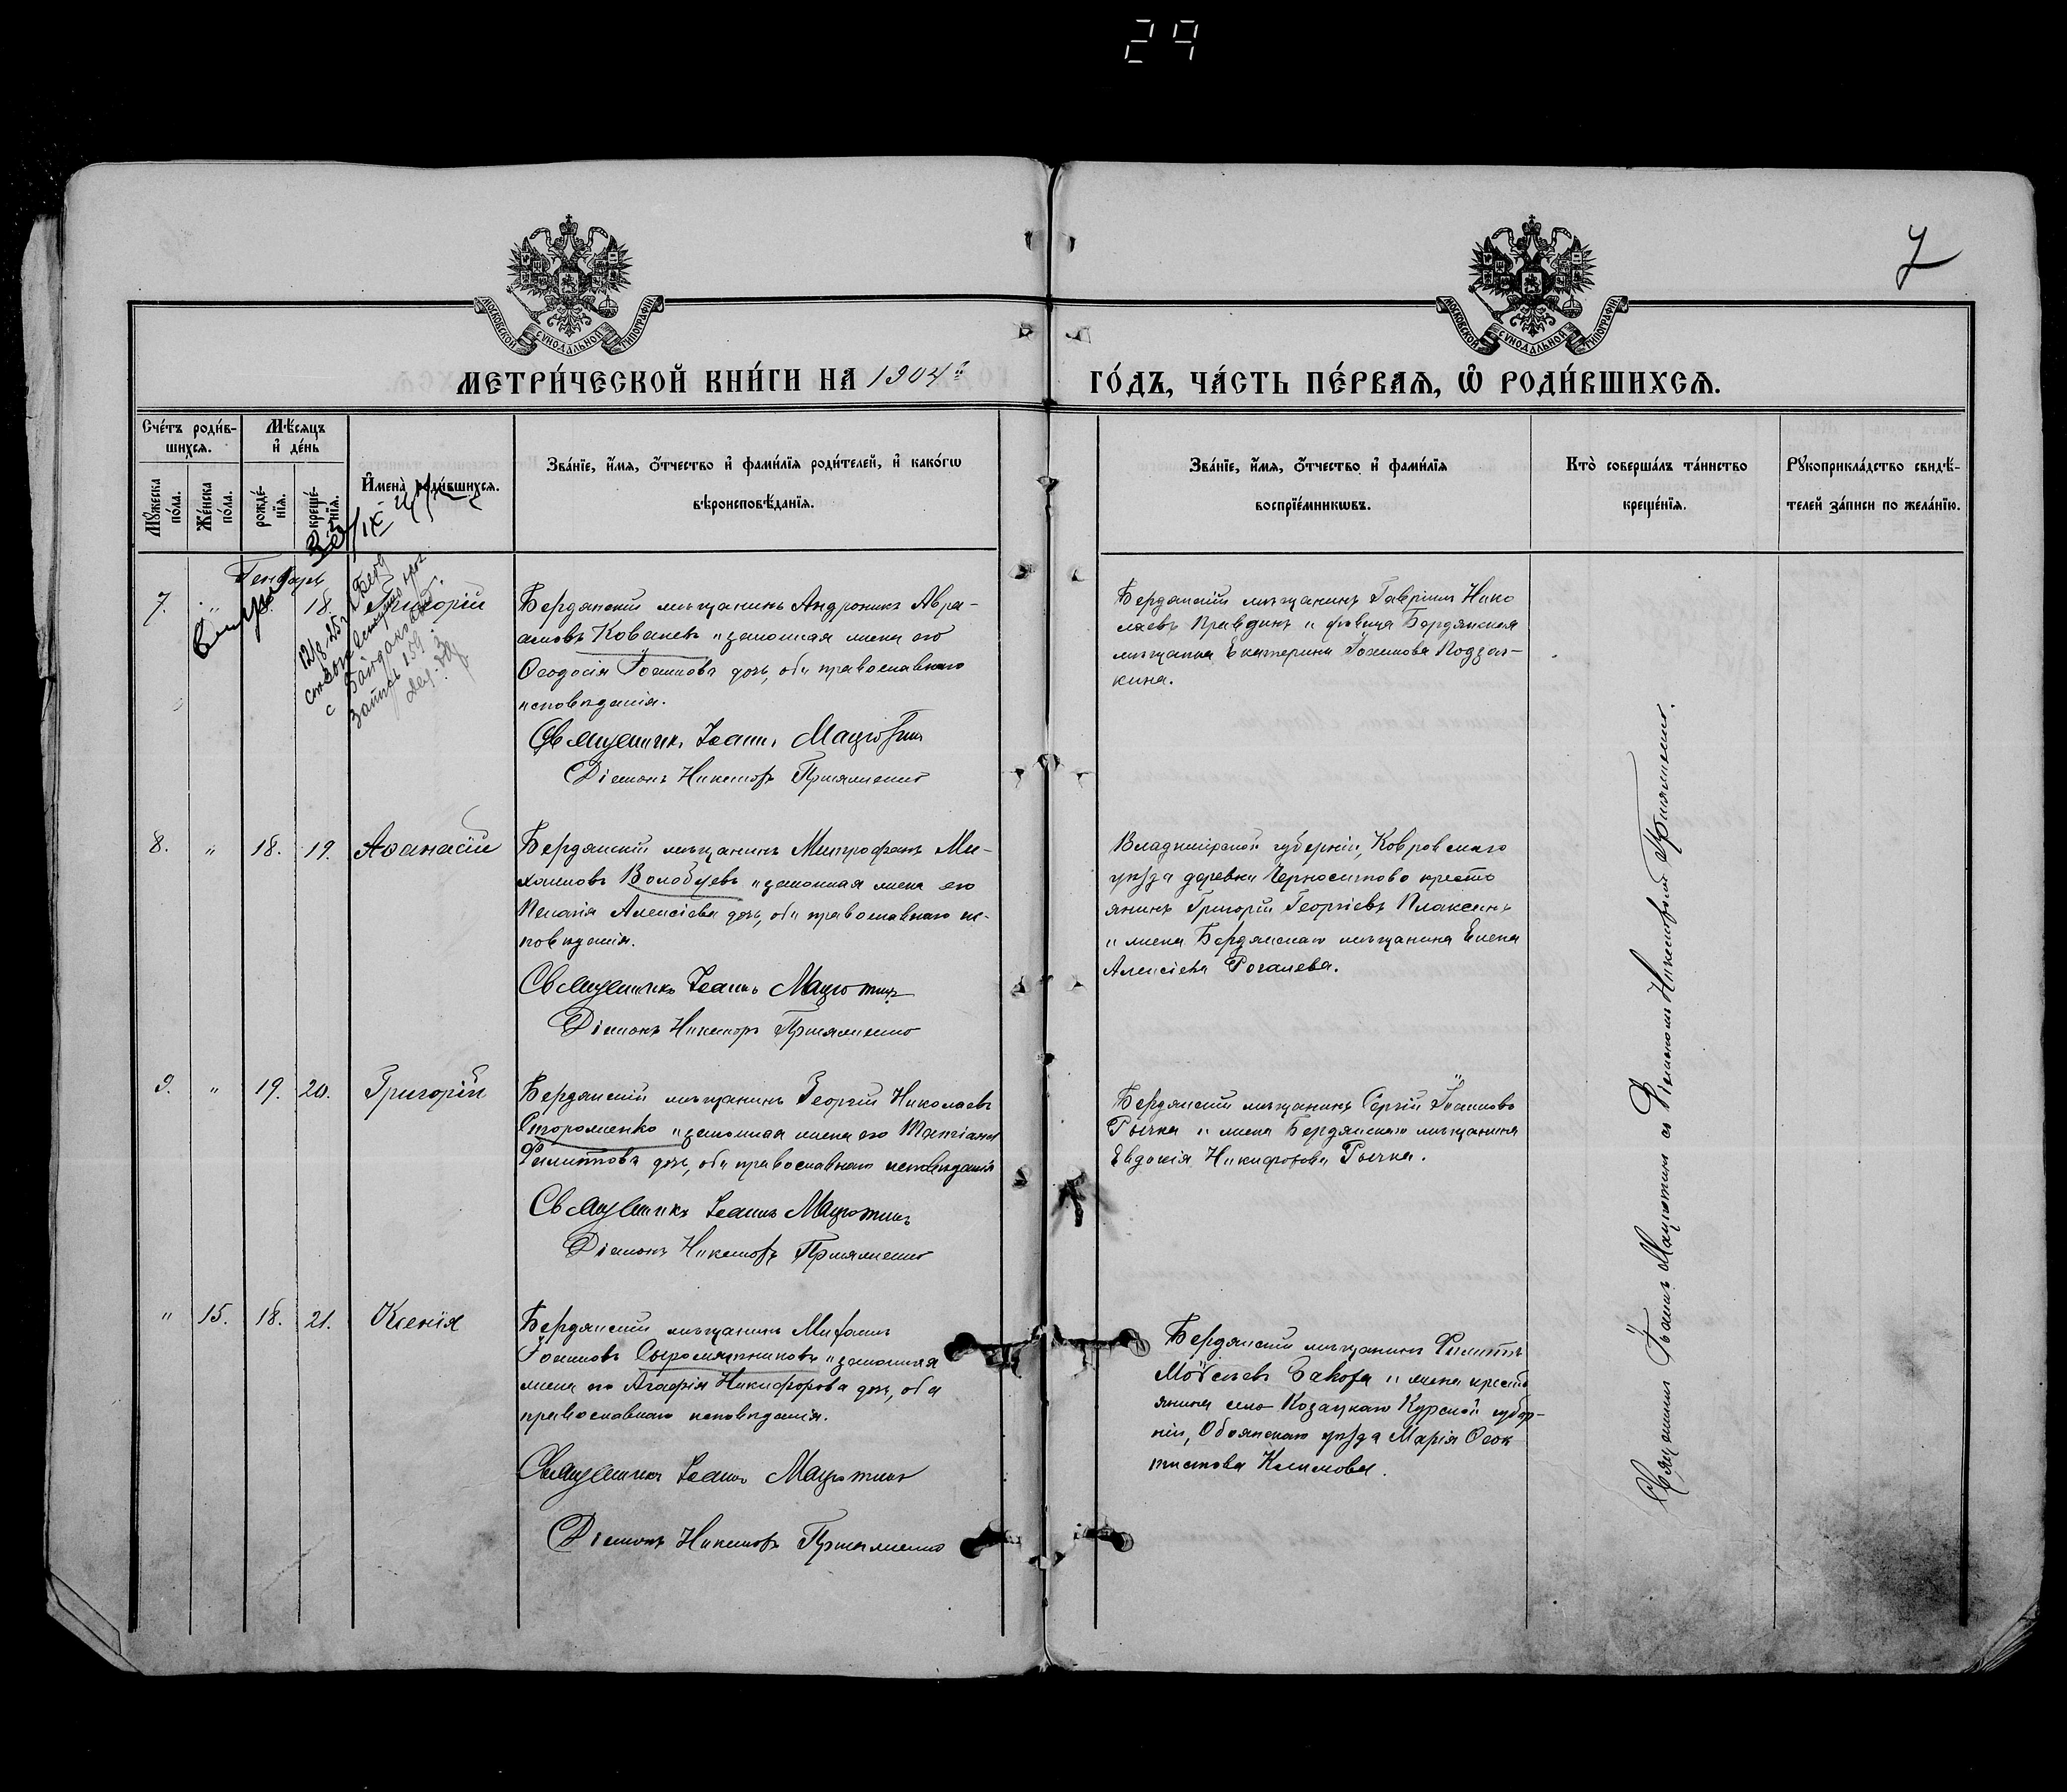 29
7
МОСКОВСКОЙ СУНОДАЛЬНОЙ ТИПОГРАФІИ
МОСКОВСКОЙ СУНОДАЛЬНОЙ ТИПОГРАФІИ
МЕТРИ́ЧЕСКОЙ КНИ́ГИ НА 1904й
ГО́ДЪ, ЧА́СТЬ ПЕ́РВАѦ, Ѡ҆ РОДИ́ВШИХСѦ.
Сче́тъ роди́в-
шихсѧ.
Мѣ́сѧцъ
и҆ де́нь
Мꙋ́жеска
по́ла.
Же́нска
по́ла.
рожде́-
нїѧ.
креще́-
нїѧ.
И҆мена̀ роди́вшихсѧ.
Зва́нїе, и҆́мѧ, ѻ҆́тчество и҆ фами́лїѧ роди́телей, и҆ како́гѡ
вѣроисповѣ́данїѧ.
Зва́нїе, и҆́мѧ, ѻ҆́тчество и҆ фами́лїѧ
воспрїе́мникѡвъ.
Кто̀ соверша́лъ та́инство
креще́нїѧ.
Рꙋкоприкла́дство свидѣ́-
телей за́писи по жела́нїю.
Генварь
7. " 18. Григорій
Бердянскій мѣщанинъ Андроникъ Авра-
амовъ Ковалевъ и законная жена его
Ѳеодосія Іоаннова дочь, оба православнаго
исповѣданія.
Священникъ Іоаннъ Мацютинъ
Діаконъ Никаноръ Пристяженко
Бердянскій мѣщанинъ Гавріилъ Нико
лаевъ Правдинъ и дѣвица Бердянская
мѣщанка Екатерина Іоаннова Подзол-
кина.
8. " 18. 19. Аѳанасій
Бердянскій мѣщанинъ Митрофанъ Ми-
хаиловъ Волобуевъ и законная жена его
Пелагія Алексіева дочь, оба православнаго ис-
повѣданія.
Священникъ Іоаннъ Мацютинъ
Діаконъ Никаноръ Пристяженко
Владимірской губерніи, Ковровскаго
уѣзда деревни Черноситово кресть
янинъ Григорій Георгіевъ Плаксинъ
и жена Бердянскаго мѣщанина Елена
Алексіева Рогалева.
9. " 19. 20. Григорій
Бердянскій мѣщанинъ Георгій Николаевъ
Стороженко и законная жена его Татіана
Филиппова дочь, оба православнаго исповѣданія
Священникъ Іоаннъ Мацютинъ
Діаконъ Никаноръ Пристяженко
Бердянскій мѣщанинъ Сергій Іоанновъ
Рычка и жена Бердянскаго мѣщанина
Евдокія Никифорова Рычка.
" 15. 18. 21. Ксенія
Бердянскій мѣщанинъ Михаилъ
Іоанновъ Сыромятниковъ и законная
жена его Агафія Никифорова дочь, оба
православнаго исповѣданія.
Священникъ Іоаннъ Мацютинъ
Діаконъ Никаноръ Пристяженко
Бердянскій мѣщанинъ Филиппъ
Моѵсеевъ и жена кресть
янина село Козацкаго Курской губер-
ніи, Обоянскаго уѣзда Марія Ѳеок
тистова Климова.
Священникъ Іоаннъ Мацютинъ съ Діакономъ Никаноромъ Пристяженко.